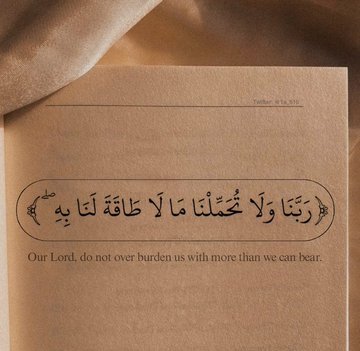 Twitter: @1a_510
﴿رَبَّنَا وَلَا تُحَمِّلْنَا مَا لَا طَاقَةَ لَنَا بِهِ ۖ﴾
Our Lord, do not over burden us with more than we can bear.